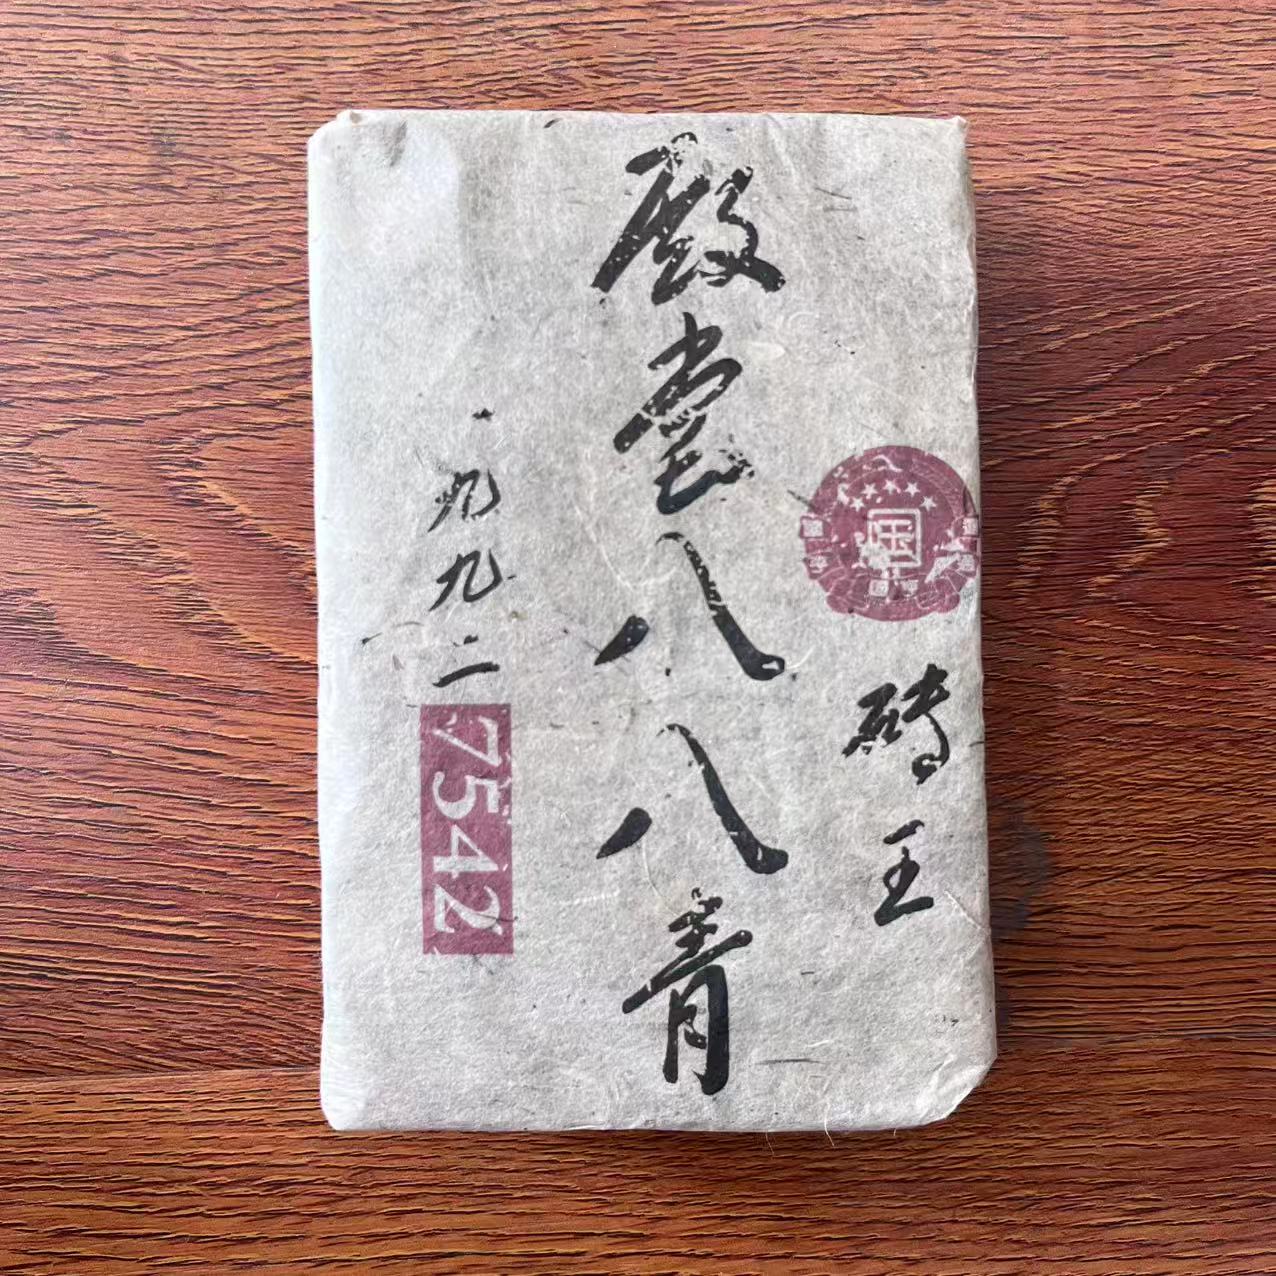 砖王
殿堂八八青
一九九二
7542